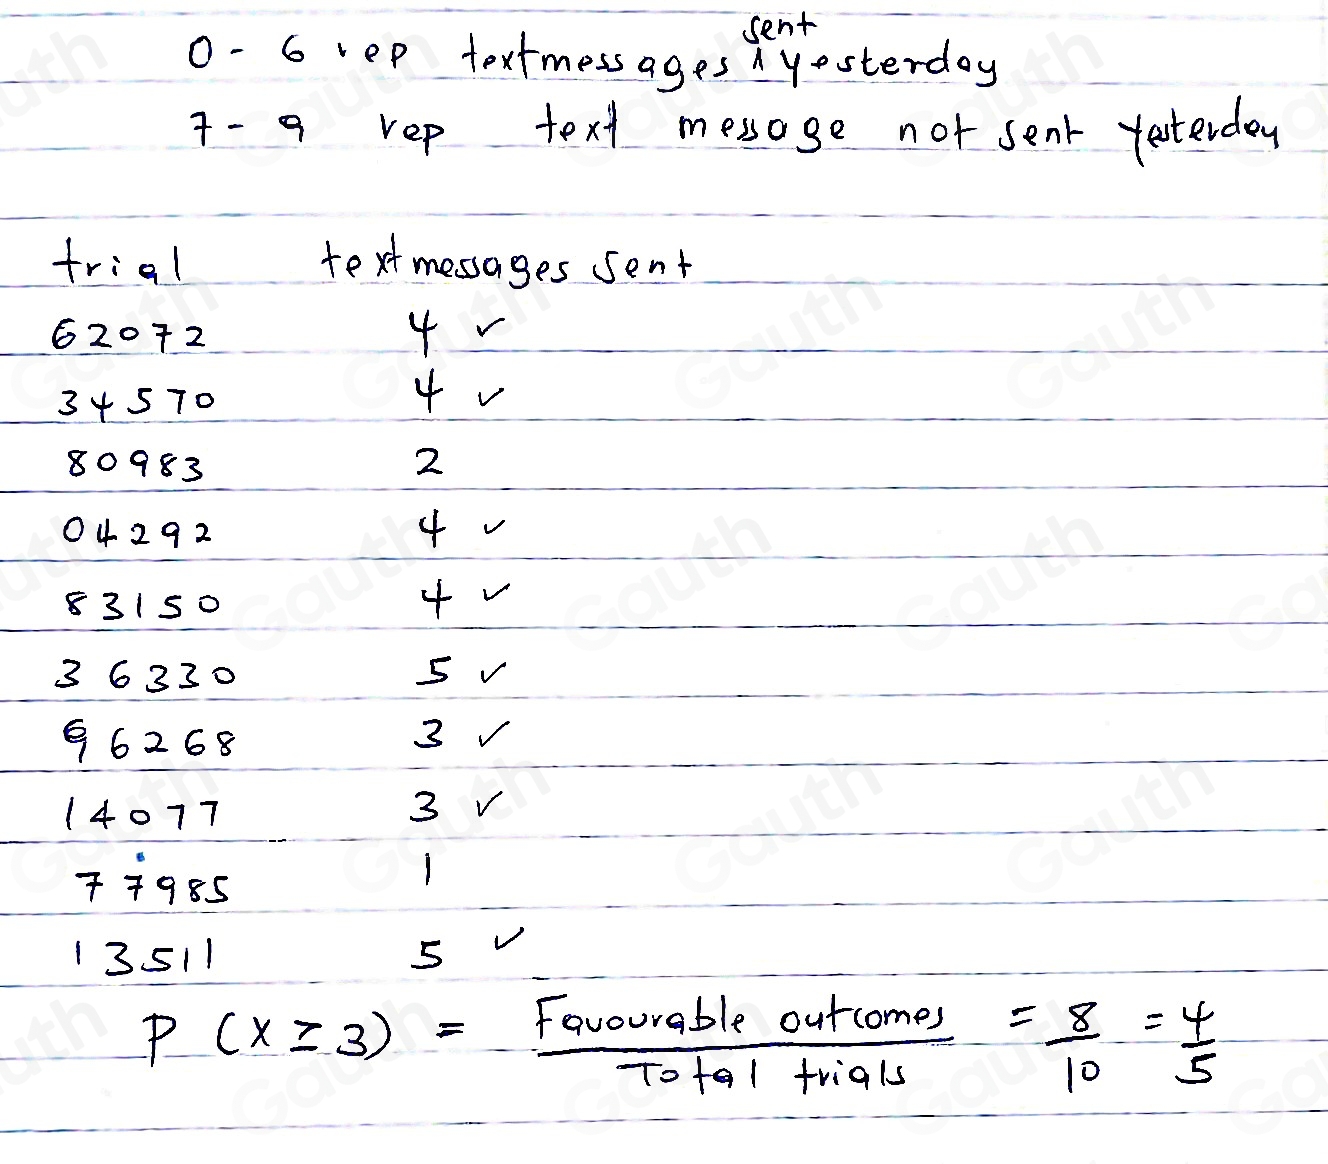 0 - 6 rep textmessages sent yesterday
7 - 9 rep text message not sent yesterday
trial textmessages sent
62072 4 ✓
34570 4 ✓
80983 2
04292 4 ✓
83150 4 ✓
36330 5 ✓
96268 3 ✓
14077 3 ✓
77985 1
13511 5 ✓
P (X ≥ 3) = Favourable outcomes / Total trials = 8/10 = 4/5